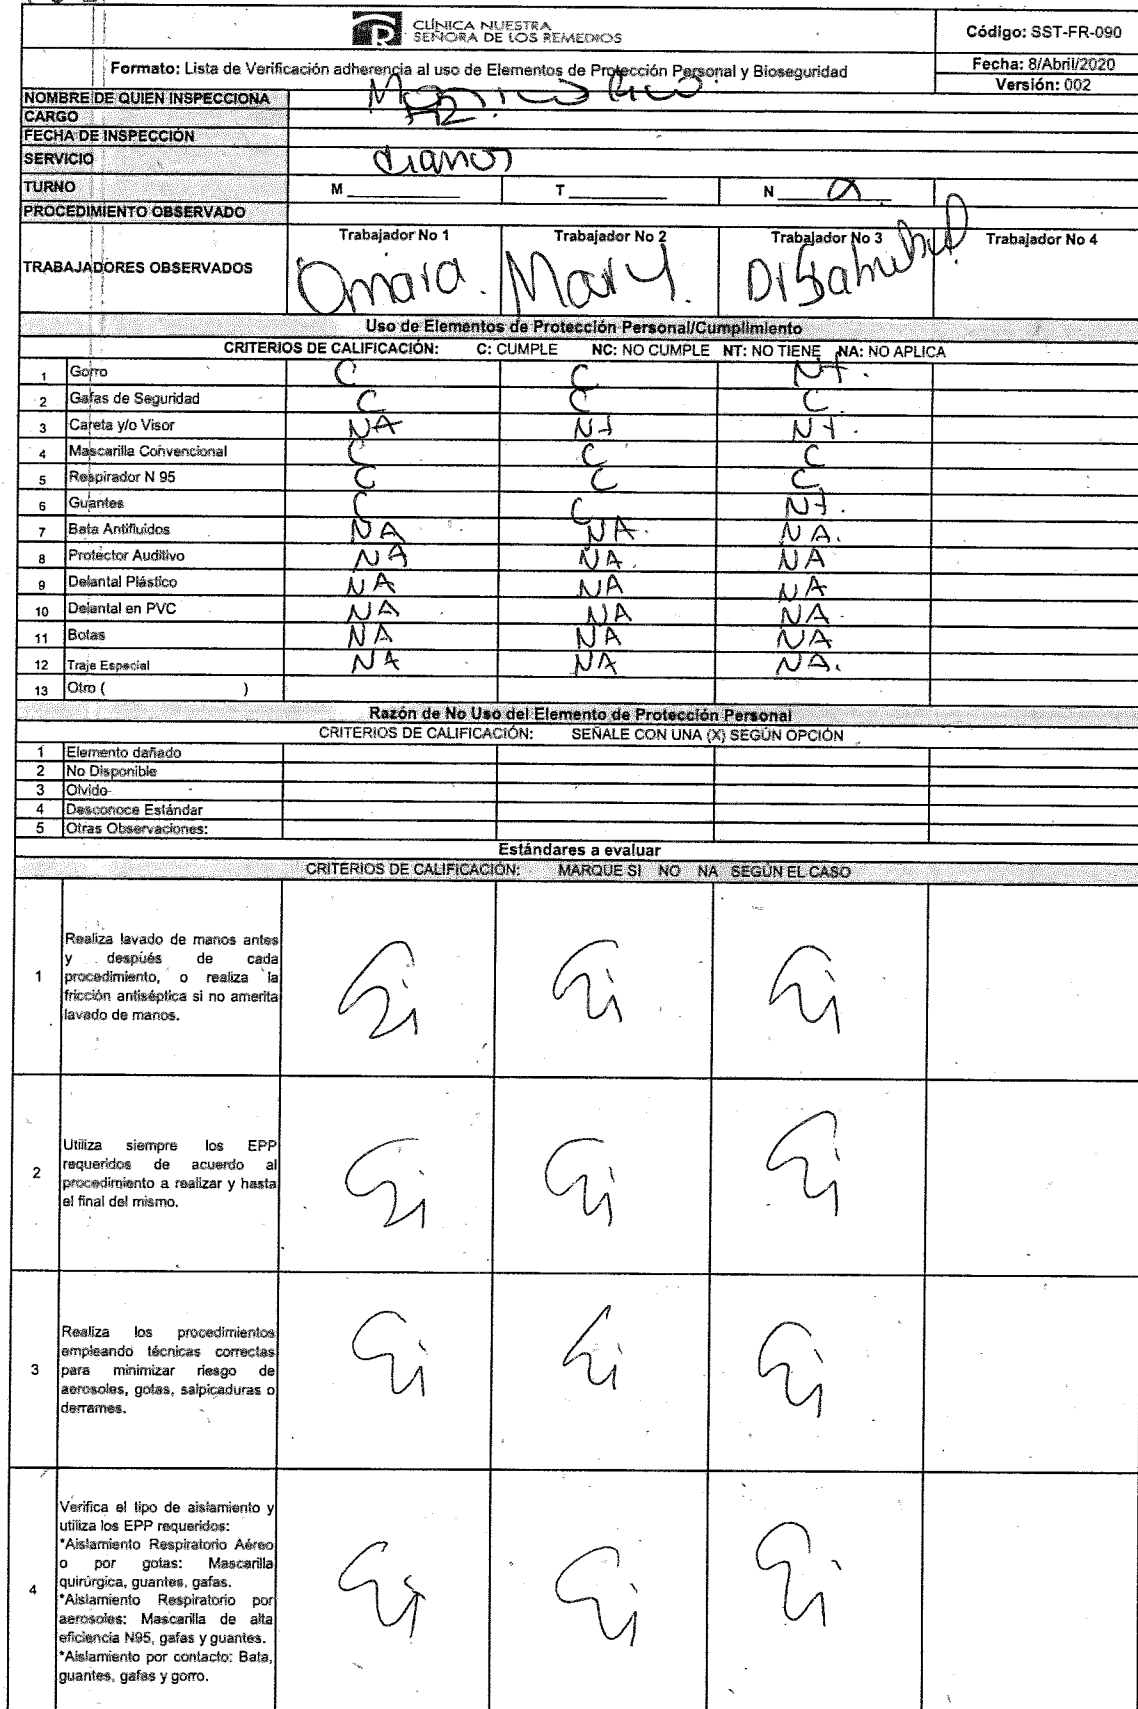 CLÍNICA NUESTRA
SEÑORA DE LOS REMEDIOS
Código: SST-FR-090
Formato: Lista de Verificación adherencia al uso de Elementos de Protección Personal y Bioseguridad
Fecha: 8/Abril/2020
Versión: 002
NOMBRE DE QUIEN INSPECCIONA
CARGO
FECHA DE INSPECCIÓN
SERVICIO
TURNO M T N
PROCEDIMIENTO OBSERVADO
Trabajador No 1 Trabajador No 2 Trabajador No 3 Trabajador No 4
TRABAJADORES OBSERVADOS Omara. Mary.
Uso de Elementos de Protección Personal/Cumplimiento
CRITERIOS DE CALIFICACIÓN: C: CUMPLE NC: NO CUMPLE NT: NO TIENE NA: NO APLICA
1 Gorro C C Nt.
2 Gafas de Seguridad C C C.
3 Careta y/o Visor NA Nt Nt.
4 Mascarilla Convencional C C C
5 Respirador N 95 C C C
6 Guantes C C Nt.
7 Bata Antifluidos NA NA. NA.
8 Protector Auditivo NA NA. NA
9 Delantal Plástico NA NA NA
10 Delantal en PVC NA NA NA.
11 Botas NA NA NA
12 Traje Especial NA NA NA.
13 Otro ( )
Razón de No Uso del Elemento de Protección Personal
CRITERIOS DE CALIFICACIÓN: SEÑALE CON UNA (X) SEGÚN OPCIÓN
1 Elemento dañado
2 No Disponible
3 Olvido
4 Desconoce Estándar
5 Otras Observaciones:
Estándares a evaluar
CRITERIOS DE CALIFICACIÓN: MARQUE SI NO NA SEGÚN EL CASO
Realiza lavado de manos antes
y después de cada
1 procedimiento, o realiza la
fricción antiséptica si no amerita
lavado de manos.
Si Si Si
Utiliza siempre los EPP
2 requeridos de acuerdo al
procedimiento a realizar y hasta
el final del mismo.
Si Si Si
Realiza los procedimientos
empleando técnicas correctas
3 para minimizar riesgo de
aerosoles, gotas, salpicaduras o
derrames.
Si Si Si
Verifica el tipo de aislamiento y
utiliza los EPP requeridos:
*Aislamiento Respiratorio Aéreo
o por gotas: Mascarilla
quirúrgica, guantes, gafas.
4 *Aislamiento Respiratorio por
aerosoles: Mascarilla de alta
eficiencia N95, gafas y guantes.
*Aislamiento por contacto: Bata,
guantes, gafas y gorro.
Si Si Si